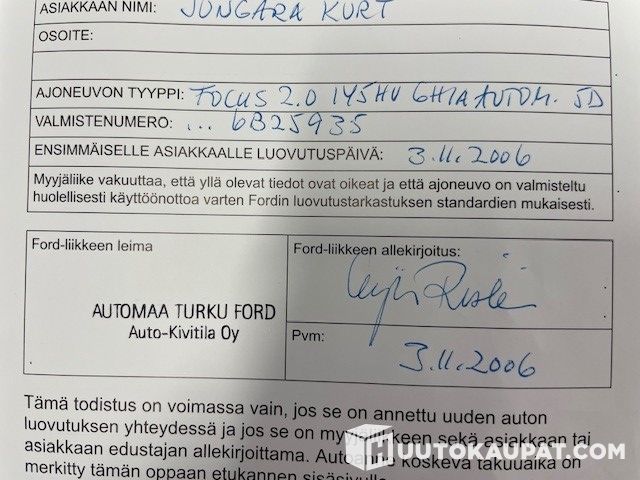 ASIAKKAAN NIMI: JUNGARA KURT
OSOITE:
AJONEUVON TYYPPI: FOCUS 2.0 145HV GHIA AUTOM. 5D
VALMISTENUMERO: ... 6B25935
ENSIMMÄISELLE ASIAKKAALLE LUOVUTUSPÄIVÄ: 3.11.2006
Myyjäliike vakuuttaa, että yllä olevat tiedot ovat oikeat ja että ajoneuvo on valmisteltu
huolellisesti käyttöönottoa varten Fordin luovutustarkastuksen standardien mukaisesti.
Ford-liikkeen leima
Ford-liikkeen allekirjoitus:
AUTOMAA TURKU FORD
Auto-Kivitila Oy
Pvm:
3.11.2006
Tämä todistus on voimassa vain, jos se on annettu uuden auton
luovutuksen yhteydessä ja jos se on sekä asiakkaan tai
asiakkaan edustajan allekirjoittama. koskeva takuuaika on
merkitty tämän oppaan etukannen sisäsivulle
HUUTOKAUPAT.COM